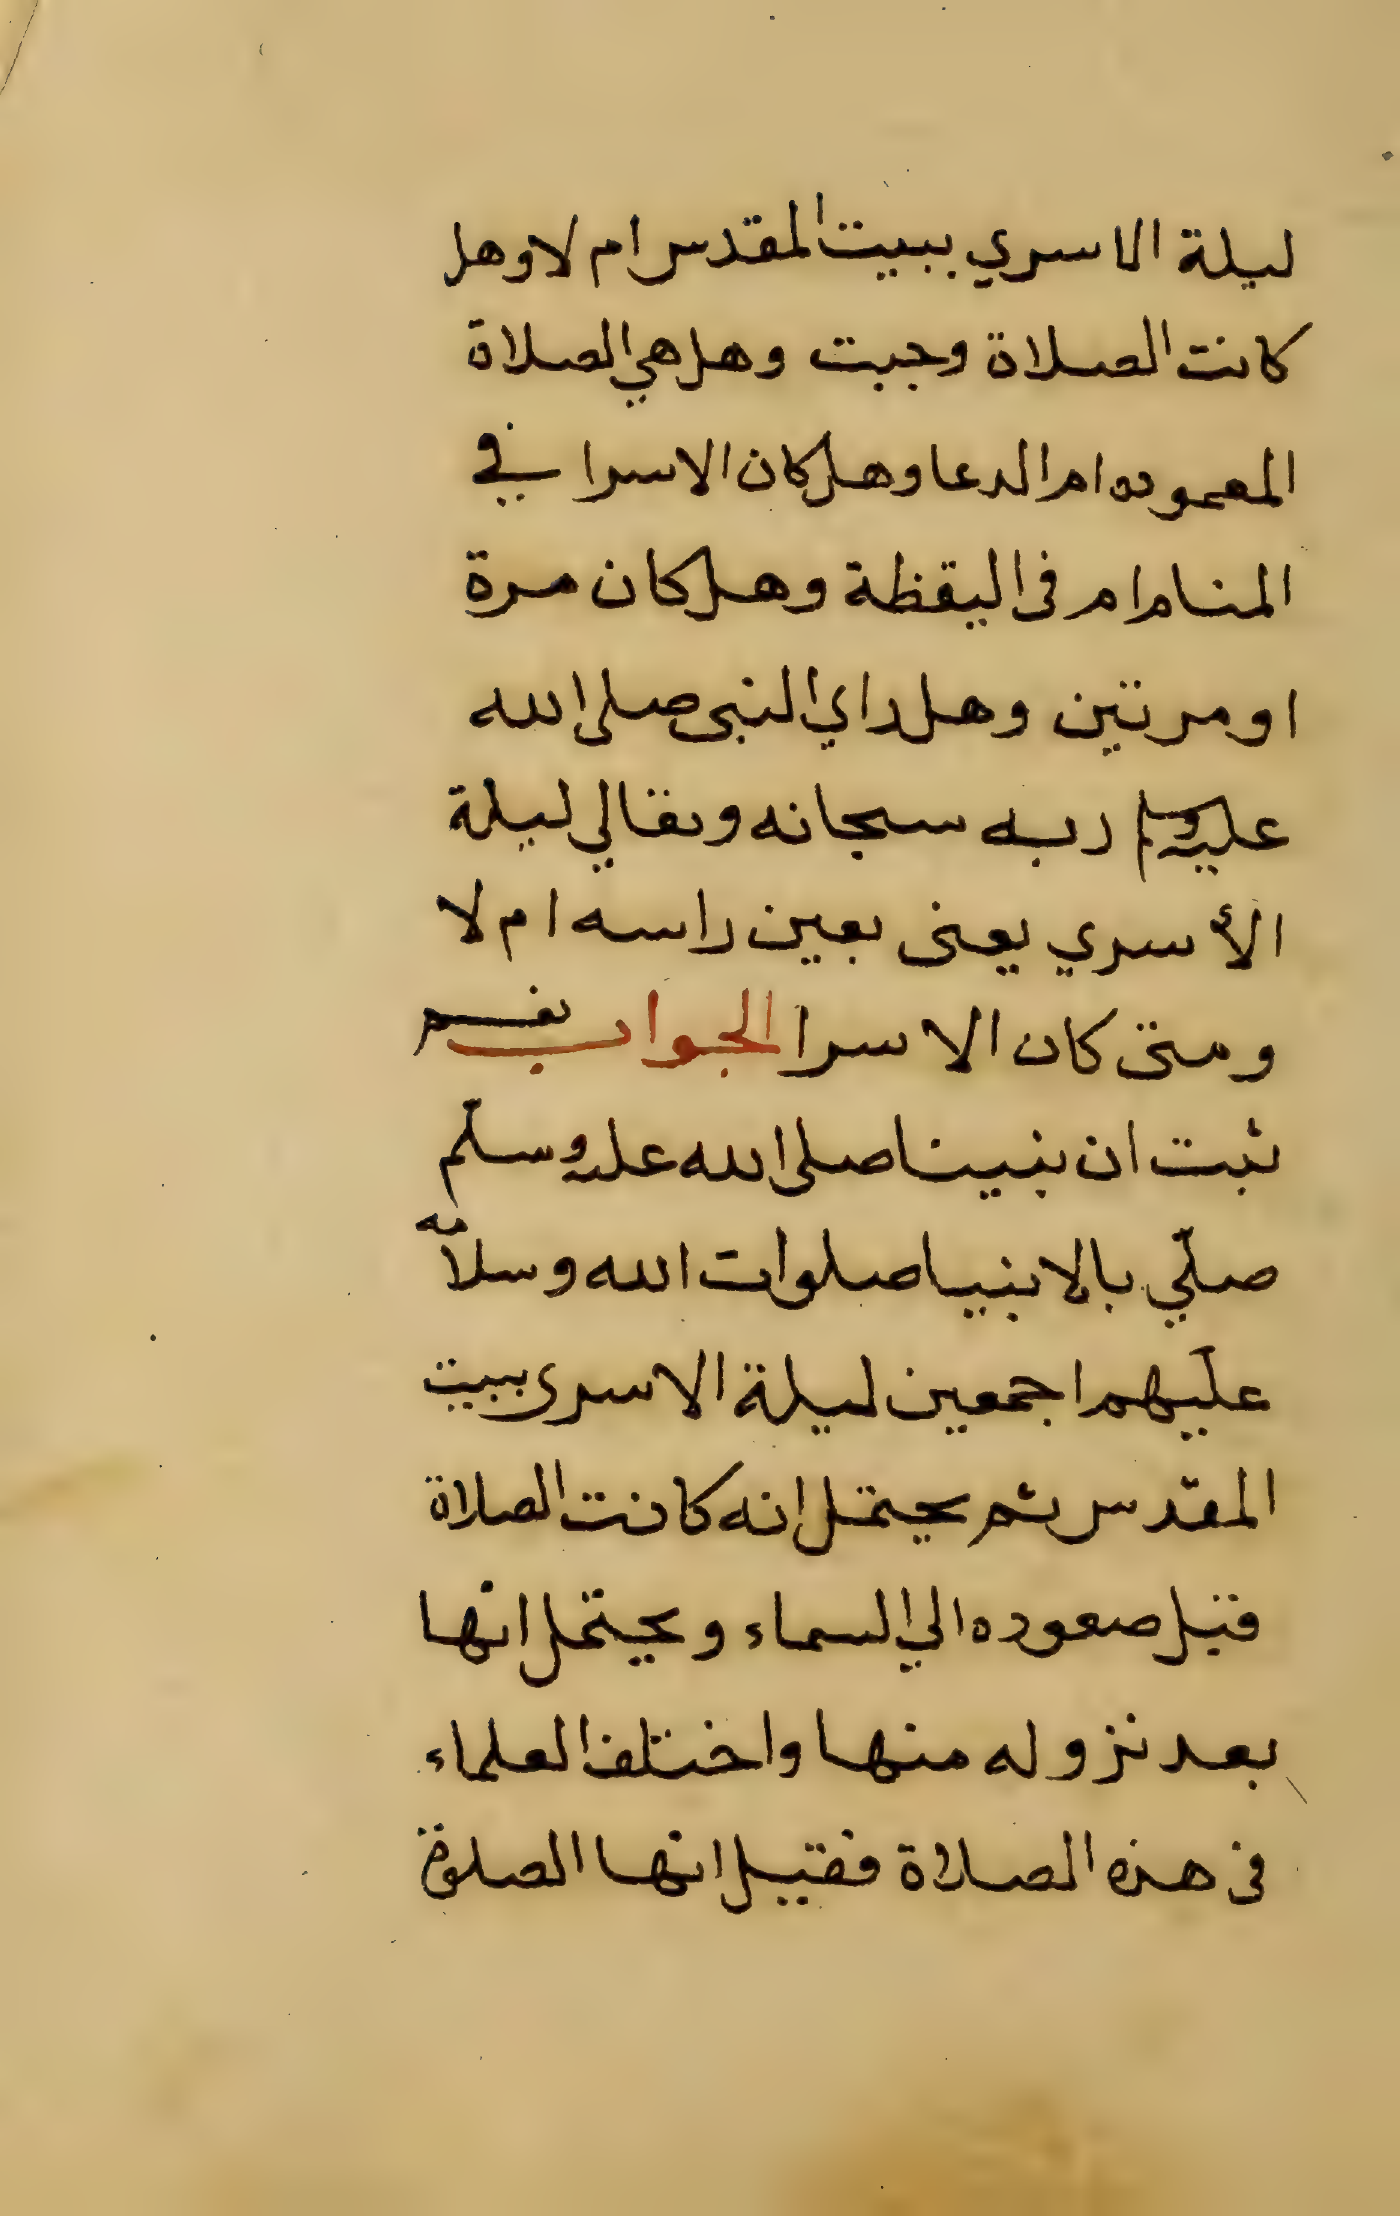 ليلة الاسري ببيت المقدس ام لا وهل
كانت الصلاة وجبت وهل هي الصلاة
المعهوده ام الدعا وهل كان الاسرا في
المنام ام فى اليقظة وهل كان مرة
او مرتين وهل راي النبى صلى الله
عليه وسلم ربه سبحانه وتعالي ليلة
الأسري يعنى بعين راسه ام لا
ومتى كان الاسرا الجواب نعم
ثبت ان نبينا صلى الله عليه وسلّم
صلّي بالانبيا صلوات الله وسلامه
عليهم اجمعين ليلة الاسرى ببيت
المقدس ثم يحتمل انه كانت الصلاة
قبل صعوده الي السماء ويحتمل انها
بعد نزوله منها واختلف العلماء
فى هذه الصلاة فقيل انها الصلوة